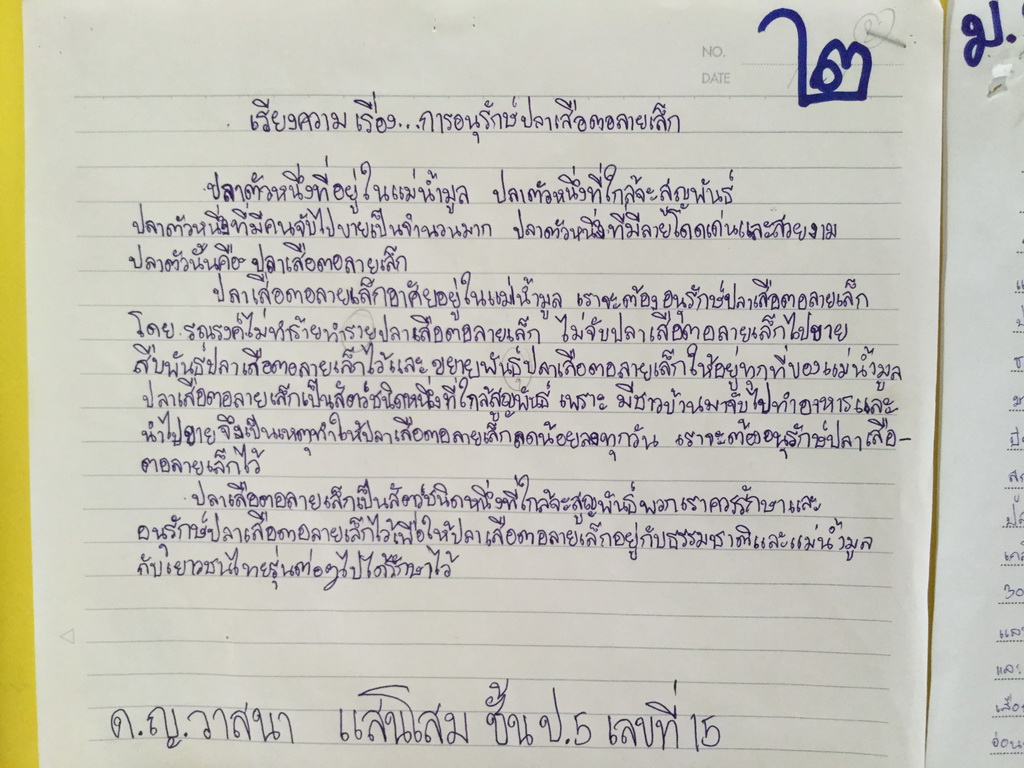 NO.
DATE
๒
เรียงความ เรื่อง...การอนุรักษ์ปลาเสือตอลายเล็ก
ปลาตัวหนึ่งที่อยู่ในแม่น้ำมูล ปลาตัวหนึ่งที่ใกล้จะสูญพันธุ์
ปลาตัวหนึ่งที่มีคนจับไปขายเป็นจำนวนมาก ปลาตัวหนึ่งที่มีลายโดดเด่นและสวยงาม
ปลาตัวนั้นคือ ปลาเสือตอลายเล็ก
ปลาเสือตอลายเล็กอาศัยอยู่ในแม่น้ำมูล เราจะต้องอนุรักษ์ปลาเสือตอลายเล็ก
โดย รณรงค์ไม่ทำร้ายทำรายปลาเสือตอลายเล็ก ไม่จับปลาเสือตอลายเล็กไปขาย
สืบพันธุ์ปลาเสือตอลายเล็กไว้และ ขยายพันธุ์ปลาเสือตอลายเล็กให้อยู่ทุกที่ของแม่น้ำมูล
ปลาเสือตอลายเล็กเป็นสัตว์ชนิดหนึ่งที่ใกล้สูญพันธุ์ เพราะ มีชาวบ้านมาจับไปทำอาหารและ
นำไปขาย จึงเป็นเหตุทำให้ปลาเสือตอลายเล็กลดน้อยลงทุกวัน เราจะต้องอนุรักษ์ปลาเสือ-
ตอลายเล็กไว้
ปลาเสือตอลายเล็กเป็นสัตว์ชนิดหนึ่งที่ใกล้จะสูญพันธุ์พวกเราควรรักษาและ
อนุรักษ์ปลาเสือตอลายเล็กไว้เพื่อให้ปลาเสือตอลายเล็กอยู่กับธรรมชาติและแม่น้ำมูล
กับเยาวชนไทยรุ่นต่อๆไปได้รักษาไว้
ด.ญ.วาสนา แสนโสม ชั้น ป.5 เลขที่ 15